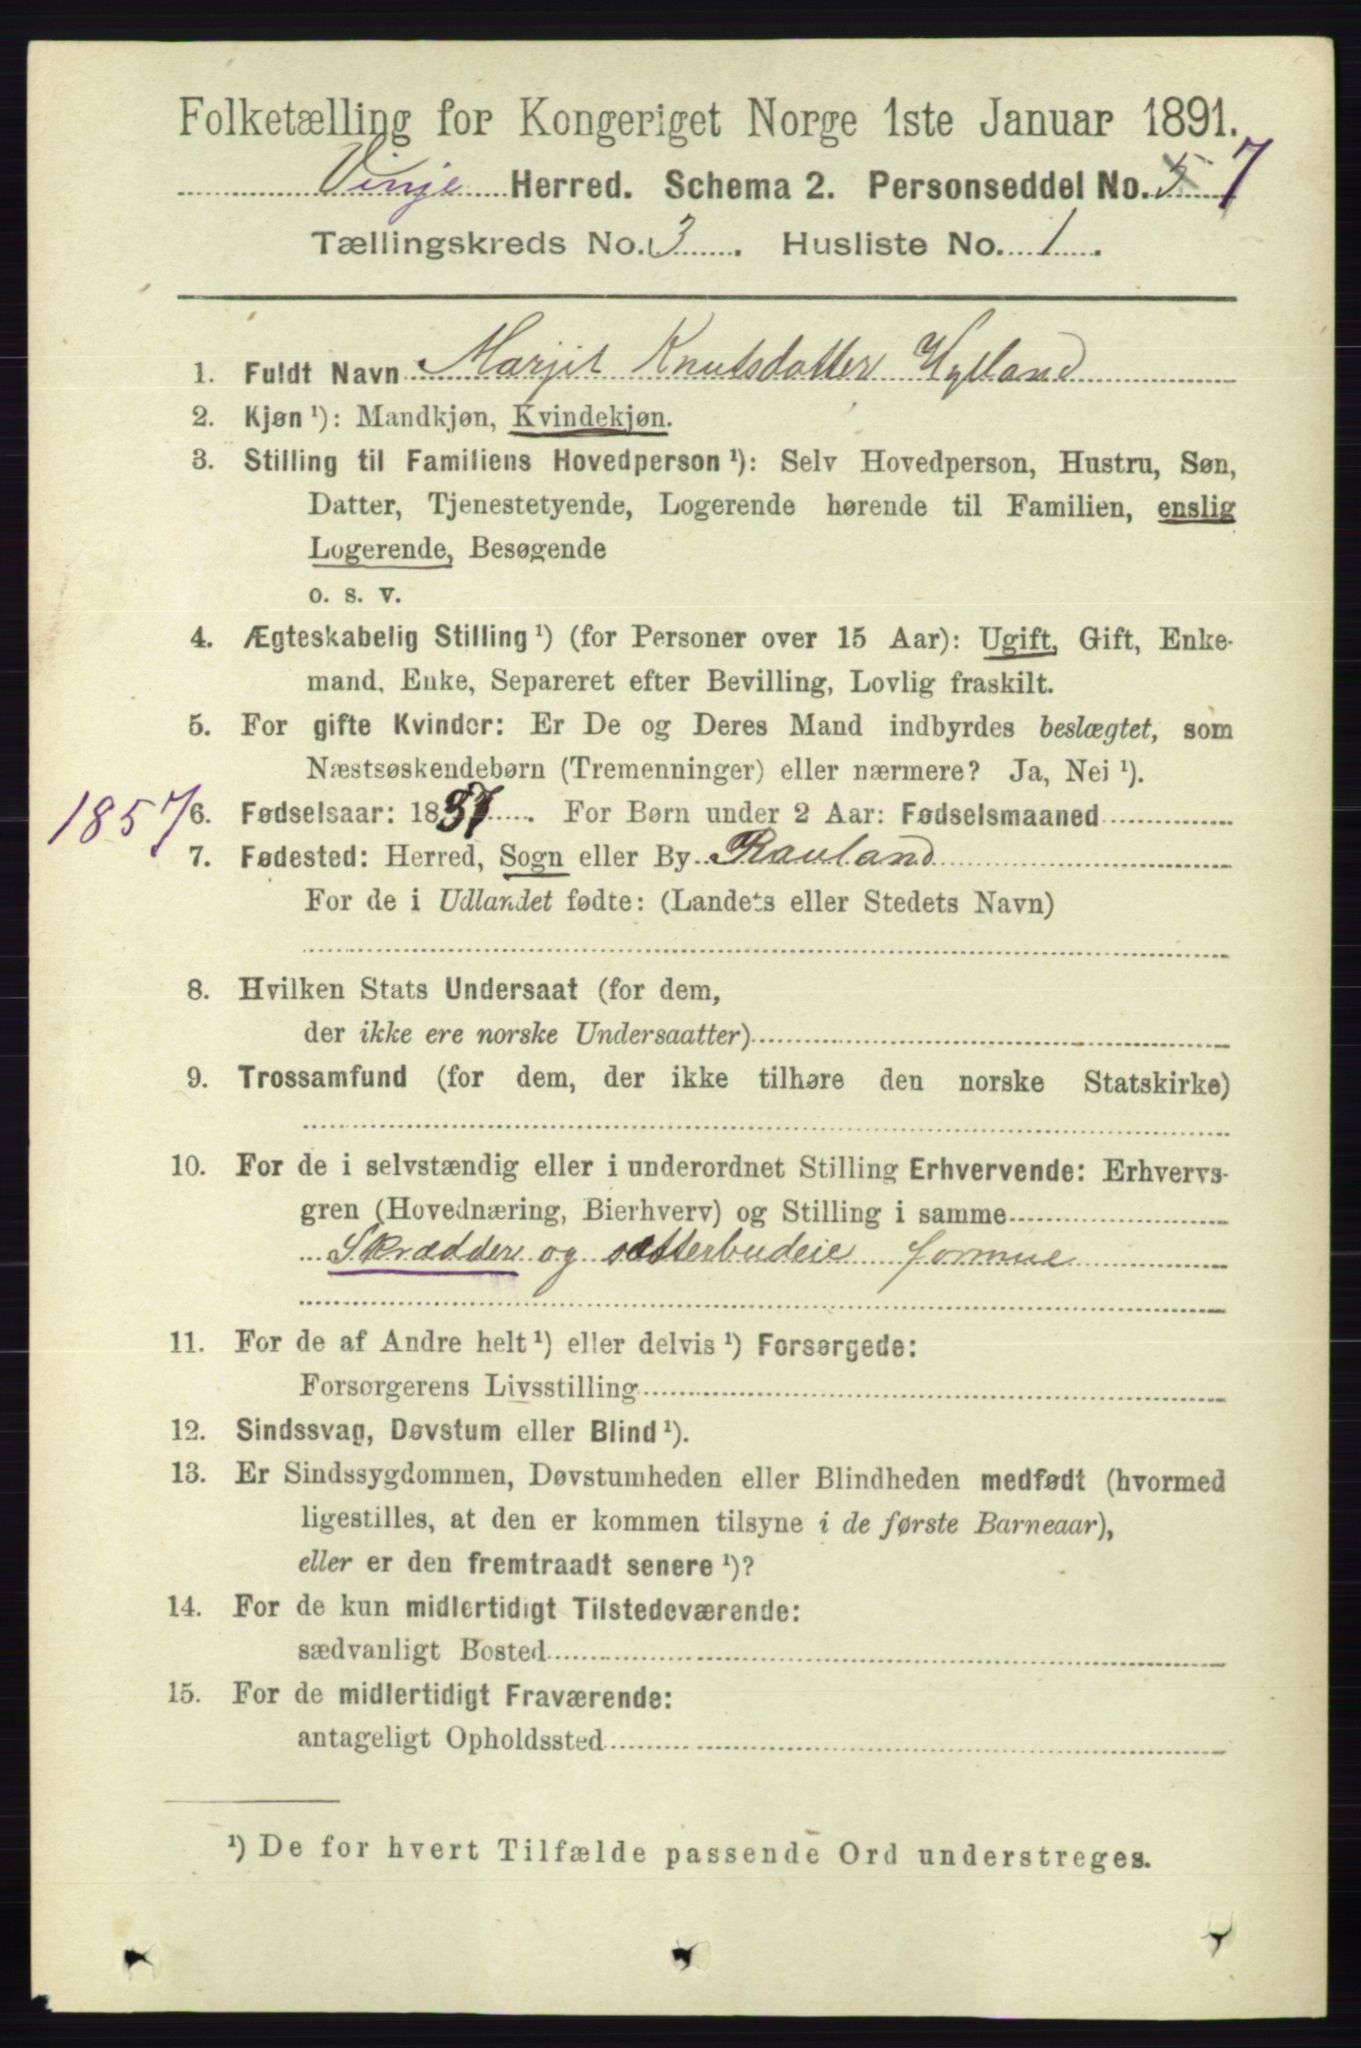 Folketælling for Kongeriget Norge 1ste Januar 1891.
Vinje Herred. Schema 2. Personseddel No. 5 7
Tællingskreds No. 3. Husliste No. 1.
1. Fuldt Navn Marjit Knutsdatter Hylland
2. Kjøn ¹): Mandkjøn, Kvindekjøn.
3. Stilling til Familiens Hovedperson ¹): Selv Hovedperson, Hustru, Søn,
Datter, Tjenestetyende, Logerende hørende til Familien, enslig
Logerende, Besøgende
o. s. v.
4. Ægteskabelig Stilling ¹) (for Personer over 15 Aar): Ugift, Gift, Enke-
mand, Enke, Separeret efter Bevilling, Lovlig fraskilt.
5. For gifte Kvinder: Er De og Deres Mand indbyrdes beslægtet, som
Næstsøskendebørn (Tremenninger) eller nærmere? Ja, Nei ¹).
1857 6. Fødselsaar: 1857. For Børn under 2 Aar: Fødselsmaaned
7. Fødested: Herred, Sogn eller By Rauland
For de i Udlandet fødte: (Landets eller Stedets Navn)
8. Hvilken Stats Undersaat (for dem,
der ikke ere norske Undersaatter)
9. Trossamfund (for dem, der ikke tilhøre den norske Statskirke)
10. For de i selvstændig eller i underordnet Stilling Erhvervende: Erhvervs-
gren (Hovednæring, Bierhverv) og Stilling i samme
Skrædder og sætterbudeie formue
11. For de af Andre helt ¹) eller delvis ¹) Forsørgede:
Forsørgerens Livsstilling
12. Sindssvag, Døvstum eller Blind ¹).
13. Er Sindssygdommen, Døvstumheden eller Blindheden medfødt (hvormed
ligestilles, at den er kommen tilsyne i de første Barneaar),
eller er den fremtraadt senere ¹)?
14. For de kun midlertidigt Tilstedeværende:
sædvanligt Bosted
15. For de midlertidigt Fraværende:
antageligt Opholdssted
¹) De for hvert Tilfælde passende Ord understreges.